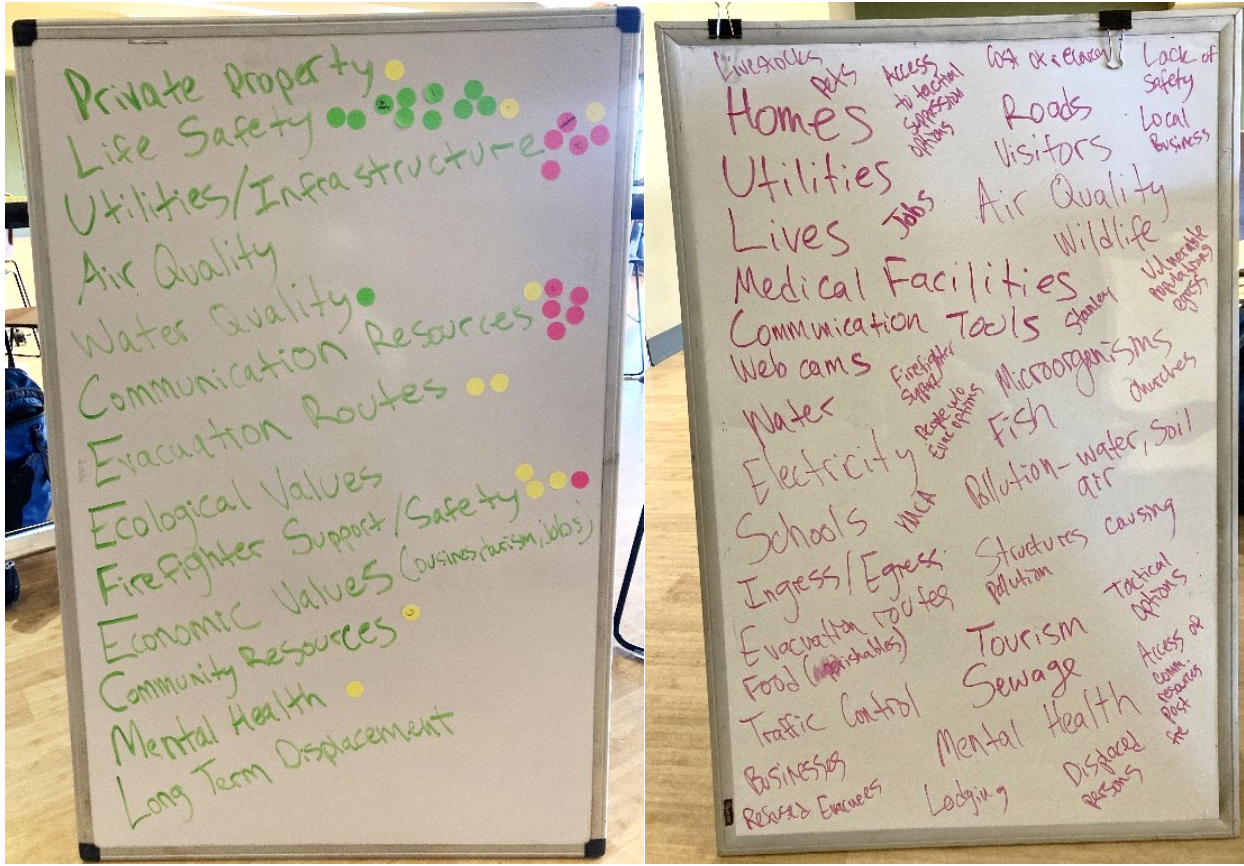 Private Property
Life Safety
Utilities/Infrastructure
Air Quality
Water Quality
Communication Resources
Evacuation Routes
Ecological Values
Firefighter Support/Safety
Economic Values (busines, tourism, jobs)
Community Resources
Mental Health
Long Term Displacement
Livestocks
Pets
Access
to tactical
suppression
options
Cost of recovery
Lack of
Safety
Homes
Roads
Local
Business
Visitors
Utilities
Jobs
Air Quality
Lives
Wildlife
Vulnerable
populations
egress
Medical Facilities
Stanley
Communication Tools
Web cams
Firefighter
Support
Microorganisms
Churches
Water
People w/o
Evac options
Fish
Electricity
Pollution - water, soil
air
Schools
YMCA
Structures causing
pollution
Ingress/Egress
Evacuation routes
Tactical
options
Food (
Tourism
Sewage
Access of
comm.
resources
post
fire
Traffic Control
Mental Health
Businesses
Refused Evacuees
Lodging
Displaced
persons